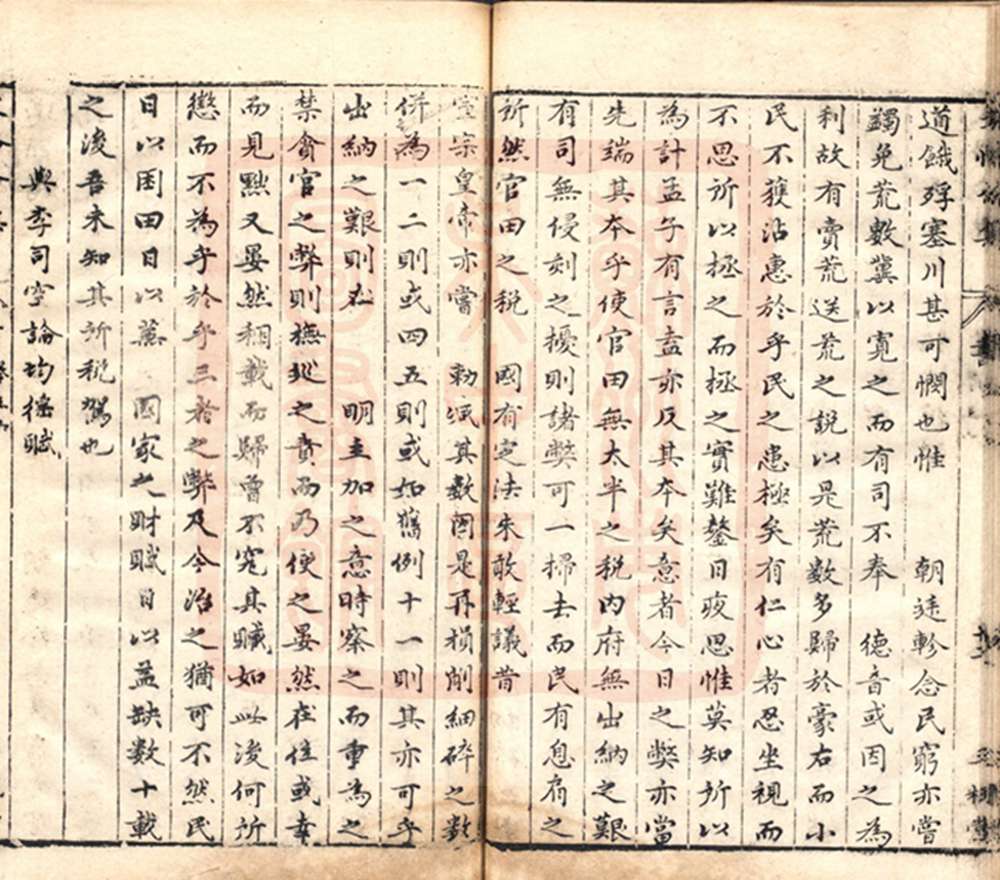 道餓殍塞川甚可憫也惟　朝廷軫念民窮亦嘗
蠲免荒數冀以寬之而有司不奉　德音或因之為
利故有賣荒送荒之說以是荒數多歸於豪右而小
民不獲沾惠於乎民之患極矣有仁心者忍坐視而
不思所以拯之而拯之之實難鏧日夜思惟莫知所以
為計孟子有言盍亦反其本矣意者今日之弊亦當
先端其本乎使官田無太半之稅內府無出納之艱
有司無侵刻之擾則諸弊可一掃去而民有息肩之
所然官田之稅　國有定法未敢輕議昔
宣宗皇帝亦嘗　勅減其數因是再損削細碎之數
併為一二則或四五則或如舊例十一則其亦可乎
出納之艱則在　明主加之意時察之而重為之
禁貪官之弊則撫巡之責而乃使之晏然在位或幸
而見黜又晏然稛載而歸曾不究其贓如此後何所
懲而不為乎於乎三者之弊及今治之猶可不然民
日以困田日以蕪　國家之財賦日以益缺數十載
之後吾未知其所稅駕也
與李司空論均徭賦